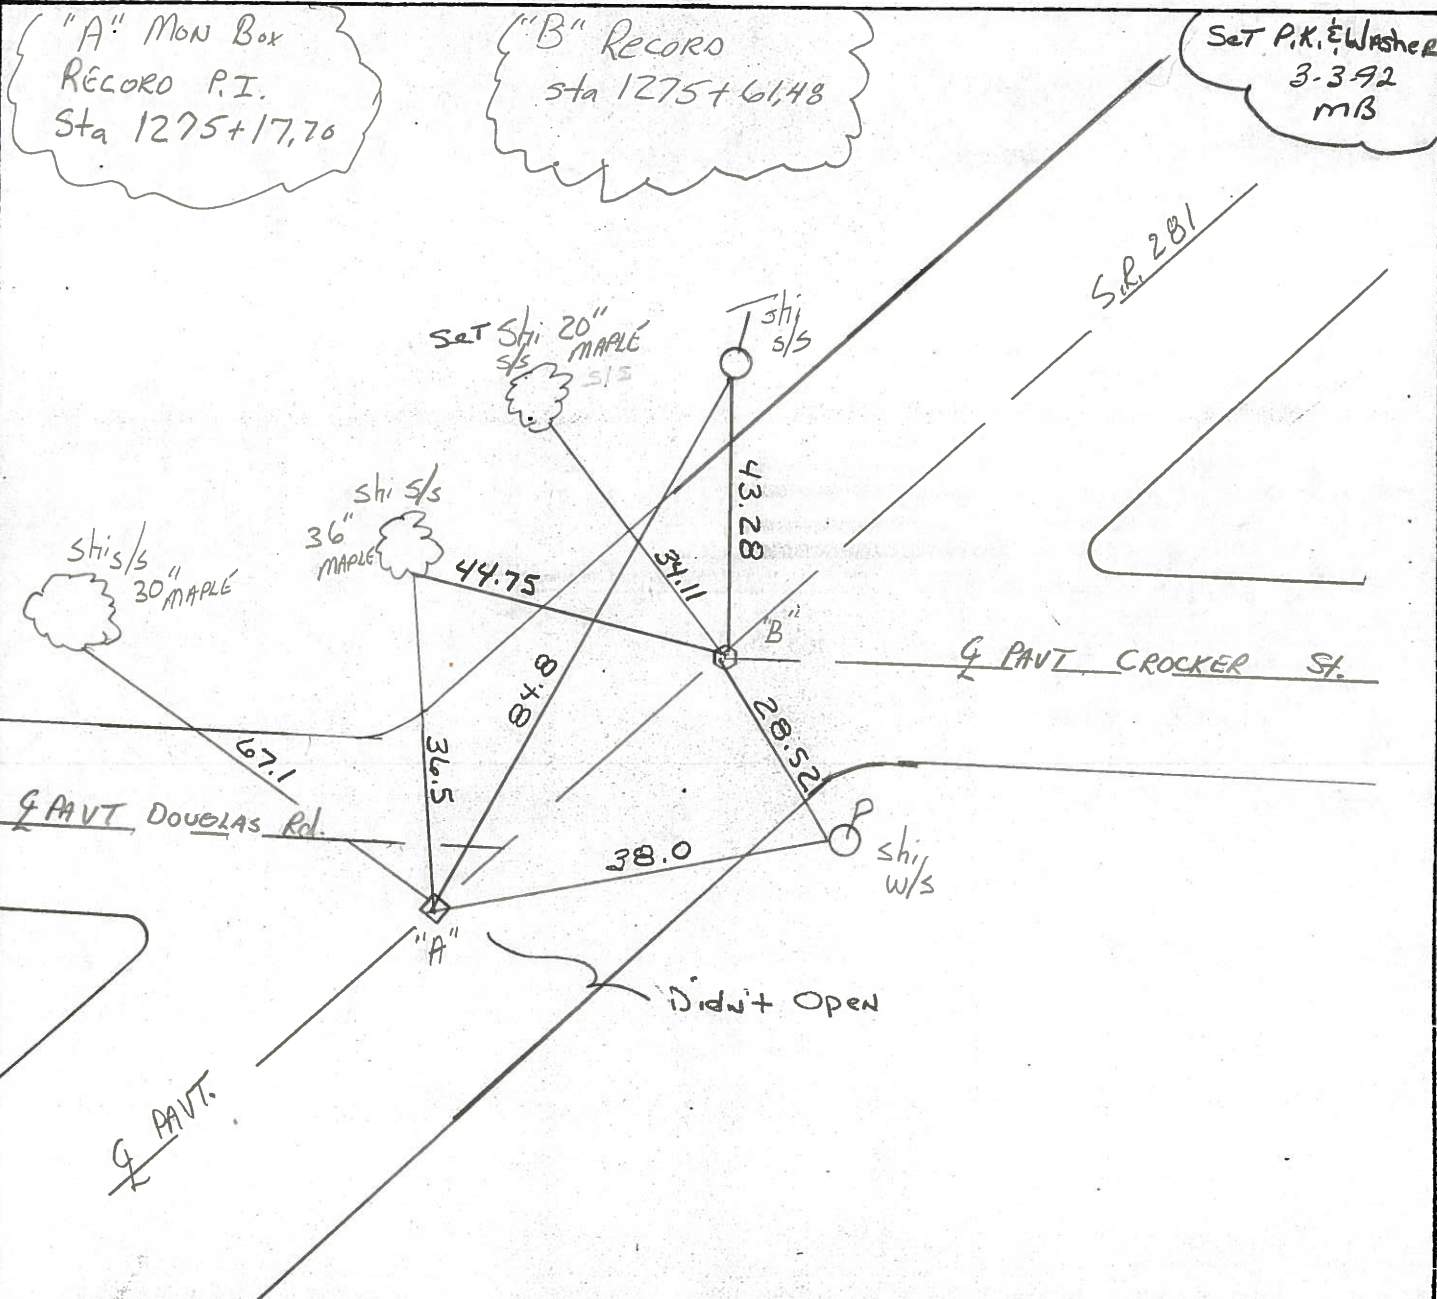 "A" MON BOX
RECORD P.I.
Sta 1275+17.70
"B" RECORD
sta 1275+61.48
SeT P.K. & WasheR
3-3-92
MB
S.R. 281
SeT Shi 20"
s/s MAPLE
s/s
shi
s/s
shi s/s
36"
MAPLE
shi s/s
30" MAPLE
44.75
34.11
43.28
"B"
℄ PAVT CROCKER St.
84.8
28.52
67.1
36.5
℄ PAVT DOUGLAS Rd.
38.0
P
shi
w/s
"A"
Didn't Open
℄ PAVT.